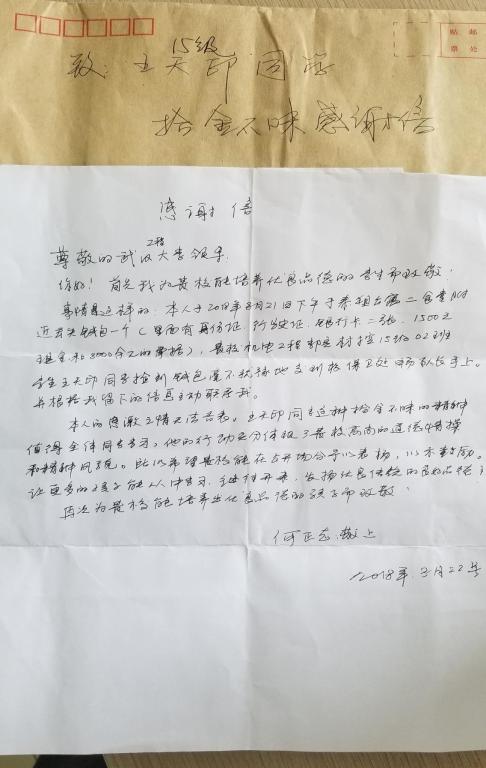 贴 邮
票 处
15级
致：王天印同学
拾金不昧感谢信
感谢信
工程
尊敬的武汉大学领导
你好！首先我为贵校能培养优良品德的学生而致敬，
事情是这样的：本人于2018年3月21日下午于 二食堂
近丢失钱包一个（里面有身份证、行驶证、银行卡二张、1500元
现金和3000余元的票据），贵校机电工程 15级02班
学生王天印同学捡到钱包毫不犹豫地交到校保卫处 队长手上。
并根据我留下的信息主动联系我。
本人的感激之情无法言表。王天印同学这种拾金不昧的精神
值得全体同学学习，他的行动充分体现了贵校高尚的道德情操
和精神风貌。此以希望贵校能在公开场合予以表扬，以示鼓励。
让更多的孩子能从中学习、继往开来，发扬优良传统的良好品德！
再次为贵校能培养出优良品德的孩子而致敬！
何正志 敬上
2018年.3月22号